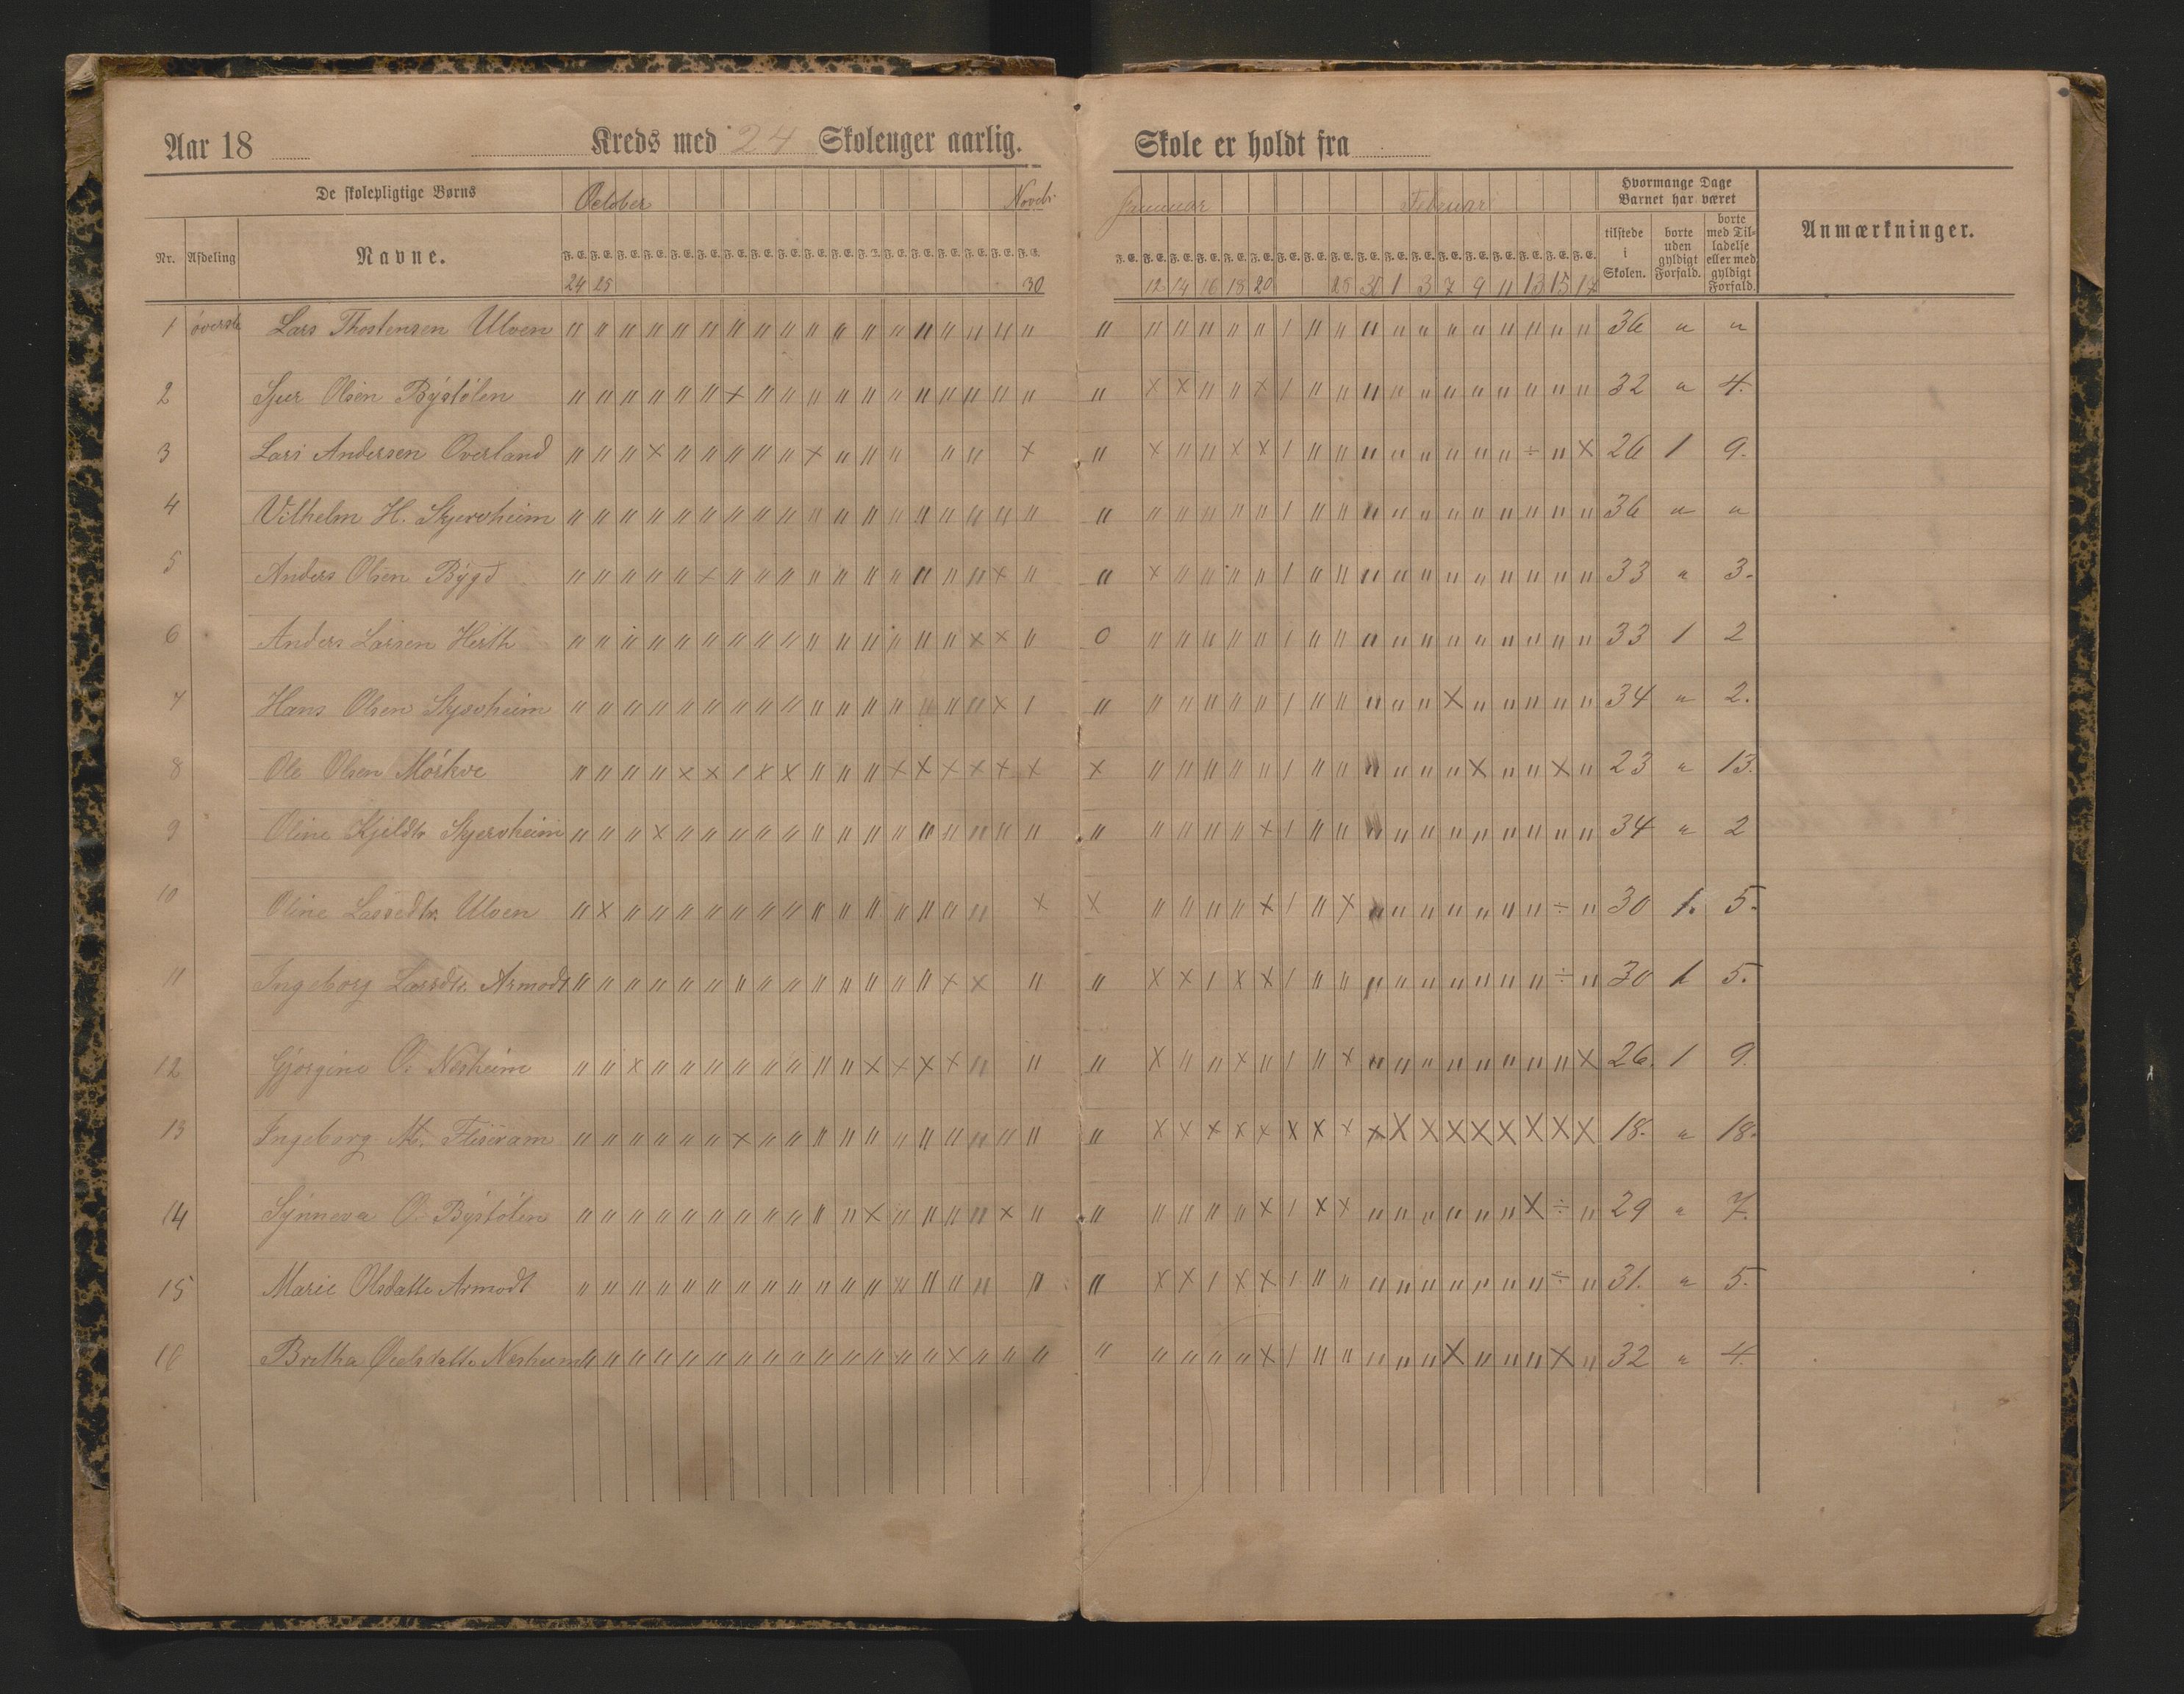 Aar 18 Kreds med 24 Skoleuger aarlig. Skole er holdt fra
De skolepligtige Børns October Novebr Januar Februar Hvormange Dage Barnet har været
Nr. Afdeling Navne. F. E. tilstede i Skolen. borte uden gyldigt Forfald. borte med Tilladelse eller med gyldigt Forfald. Anmærkninger.
24 25 30 12 14 16 18 20 25 30 1 3 7 9 11 13 15 17
1 øverste Lars Thostensen Ulven 36 " "
2 Sjur Olsen Býstölen 32 " 4.
3 Lars Andersen Overland 26 1 9.
4 Vilhelm H. Skjervheim 36 " "
5 Anders Olsen Býgd 33 " 3.
6 Anders Larsen Herth 33 1 2
7 Hans Olsen Skjervheim 34 " 2.
8 Ole Olsen Mörkve 23 " 13.
9 Oline Kjeldtr. Skjervheim 34 " 2
10 Oline Lassedtr. Ulven 30 1. 5.
11 Ingeborg Larsdtr. Armodt 30 1 5.
12 Gjorgine O. Nesheim 26. 1 9.
13 Ingeborg M. 18. " 18.
14 Sýnneva O. Býstölen 29 " 7.
15 Marie Olsdatte Armodt 31. " 5.
16 Britha Nesheim 32 " 4.